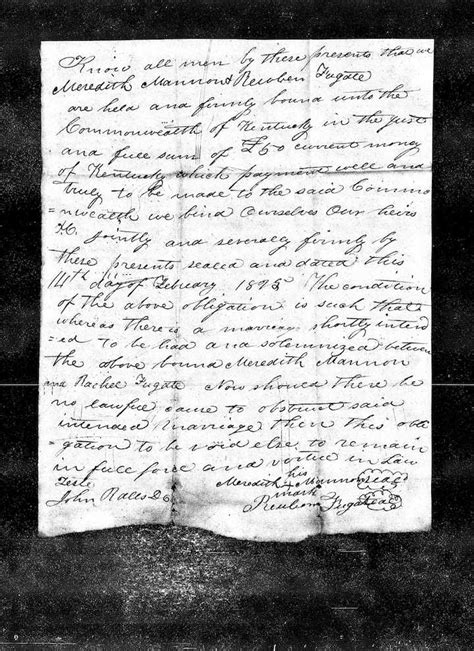 Know all men by these presents that we
Meredith Mannon & Reuben Fugate
are held and firmly bound unto the
Commonwealth of Kentucky in the just
and full sum of £50 current money
of Kentucky which payment well and
truly to be made to the said Commo
=nwealth we bind Ourselves Our heirs
&C. Jointly and severally firmly by
these presents sealed and dated this
14th day of February The condition
of the above obligation is such that
whereas there is a marriage shortly intend
=ed to be had and solemnized between
the above bound Meredith Mannon
and Rachel Fugate Now should there be
no lawful cause to obstruct said
intended marriage then this obli
gation to be void else to remain
in full force and vertue in Law
Teste
his
Meredith + Mannon seal
mark
John
Reuben Fugate seal